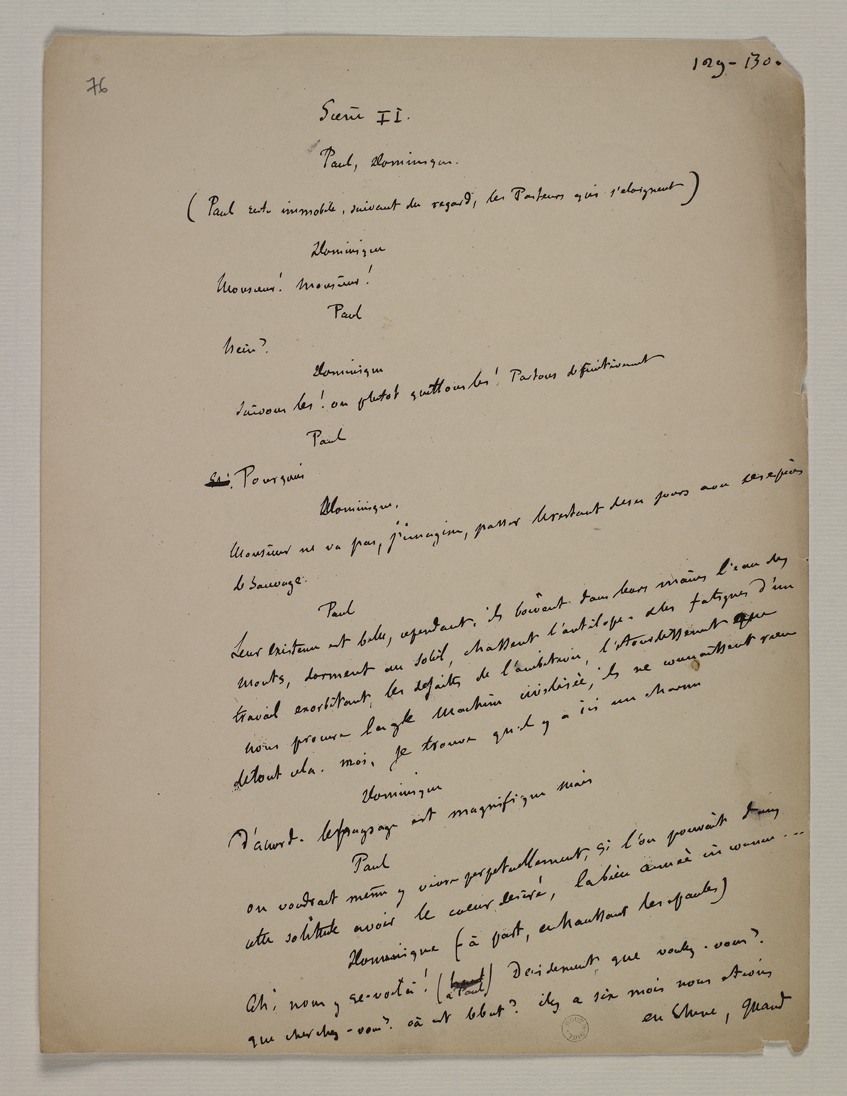 76
129-130.
Scène II.
Paul, Dominique.
(Paul reste immobile, suivant du regard, les Pasteurs qui s'eloignent)
Dominique
Monsieur! Monsieur!
Paul
hein?.
Dominique
Suivons les! ou plutot quittons les! Partons definitivement
Paul
Pourquoi
Dominique.
Monsieur ne va pas, j'imagine, passer le restant de ses jours avec ces espèces
de Sauvage.
Paul
Leur existence est belle, cependant. ils boivent dans leurs mains l'eau des
monts, dorment au soleil, chassent l'antilope. des fatigues d'un
travail exorbitant, les defaites de l'ambition, l'étourdissement que
nous procure la machine civilisée, ils ne connaissent rien
de tout cela. moi, je trouve qu'il y a ici un charme
Dominique
D'accord. le paysage est magnifique mais
Paul
on voudrait même y vivre perpetuellement, si l'on pouvait dans
cette solitude avoir le coeur desiré, la bien aimée inconnue...
Dominique (à part, en haussant les epaules)
Ah! nous y re-voilà! (à Paul) Decidement que voulez-vous?.
que cherchez-vous? où est le but? il y a six mois nous etions
en Chine, quand